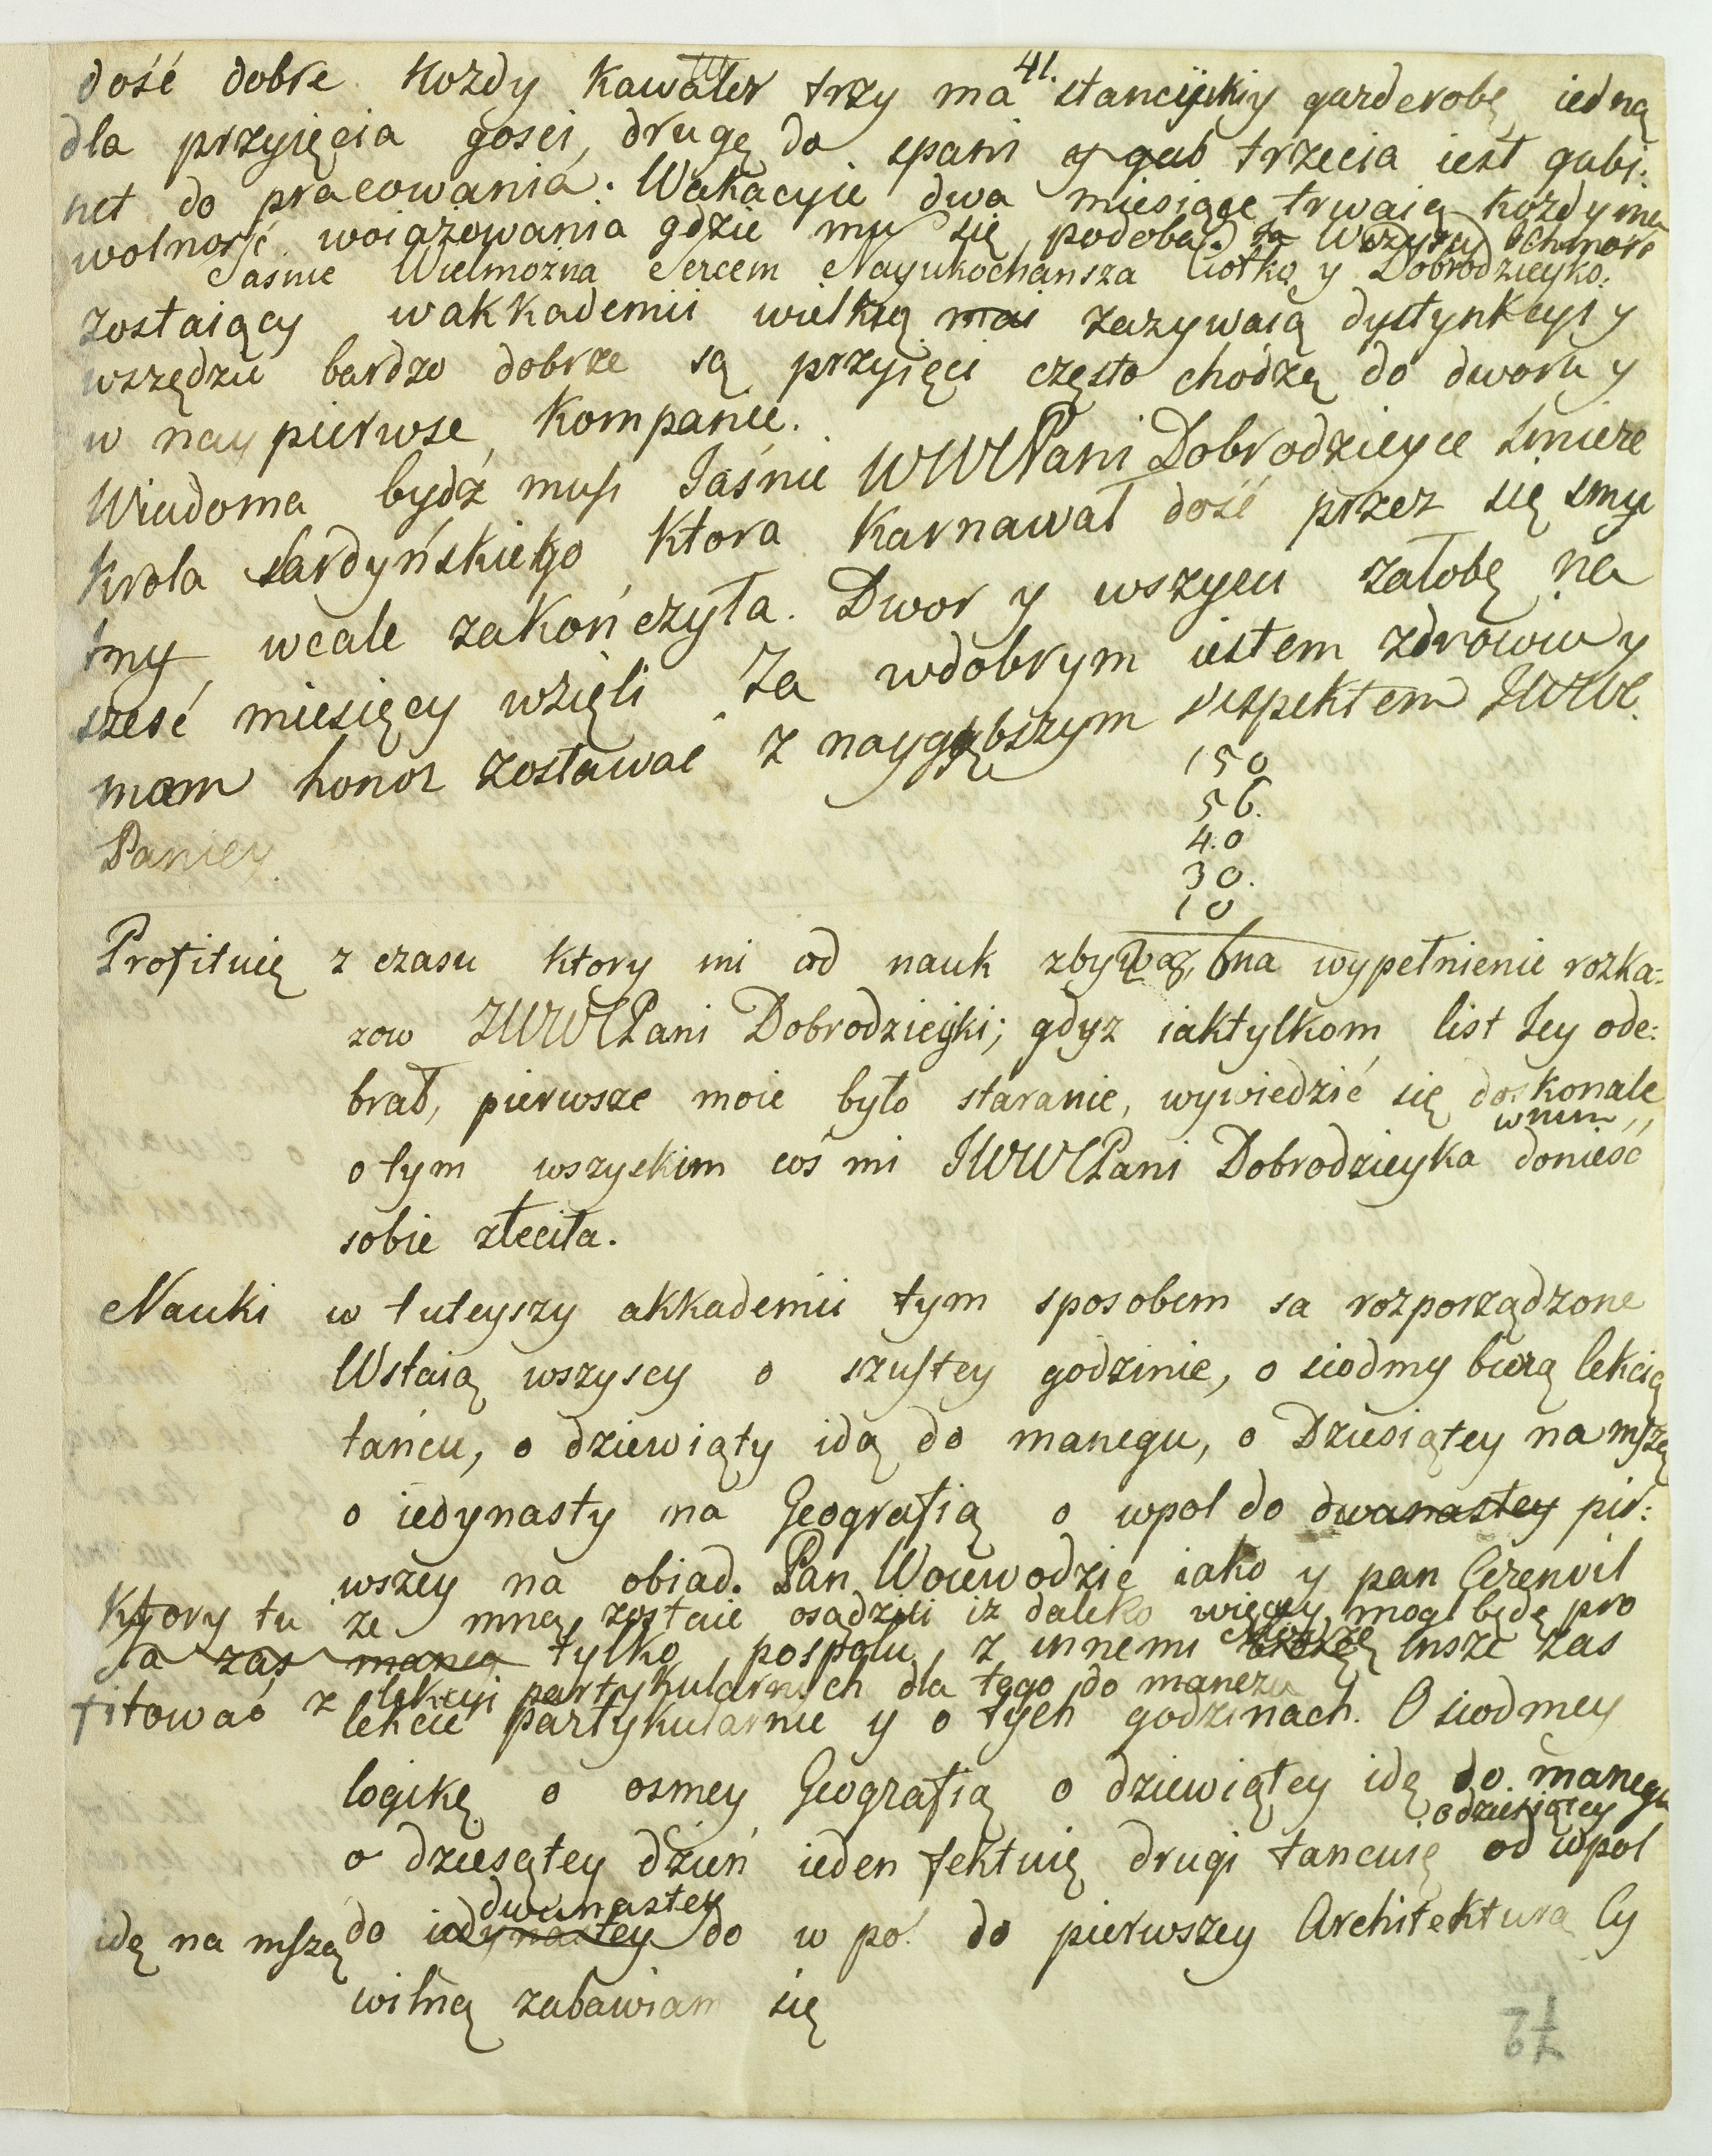 41.
dość dobre Kozdy Kawaler trzy ma stancyiki y garderobę, iedną
dla przyięcia gosci, drugę do spani y gab trzecia iest gabi:
net do pracowania. Wakacyie dwa miesiące trwaią kozdy ma
wolność woiażowania gdzie mu się podoba.
Jaśnie Wielmozna Sercem Nayukochansza Ciotko y Dobrodzieyko.
zostaiący wakkademii wielką mai zazywaią dystynkcyi y
wszędzie bardzo dobrze są przyięci często chodzą do dworu y
w nay pierwsze Kompanie.
Wiadoma bydź musi Jaśnie WWPani Dobrodzieyce smierć
Krola Sardyńskiego Ktora Karnawał dość przez się smu
tny wcale zakończyła. Dwor y wszyscy załobę na
szesć miesięcy wzięli Ja wdobrym iestem zdrowiu y
mam honor zostawać z naygłębszym respektem JWW.
Paniey.
150
56.
40
30.
10
Profituię z czasu ktory mi od nauk zbywa, na wypełnienie rozka:
zow JWWPani Dobrodzieyki; gdyz iaktylkom list Jey ode:
brał, pierwsze moie było staranie, wywiedzić się doskonale
o tym wszyskim coś mi JWWPani Dobrodzieyka donieść
sobie zleciła.
Nauki w tuteyszy akkademii tym sposobem sa rozporządzone
Wstaią wszyscy o szustey godzinie, o siodmy biorą lekcią
tańcu, o dziewiąty idą do manegu, o Dziesiątey na mszę
o iedynasty na Geografią o wpol do dwanastey pir:
wszey na obiad. Pan Woiewodzic iako y pan Cerenvil
Ktory tu ze mną zostaie osądzili iz daleko więcey mogl będę pro
Ja zas manea tylko pospolu z innemi insze zas
fitować z lekcyi partykularnych dla tego do manezu
lekcie partykularnie y o tych godzinach. O siodmey
logikę o osmey Geografią o dziewiątey idę do manegu
o dziesiątey
o dziesątey dzień ieden fektuię drugi tancuię od wpol
dwanastey
idę na mszą do iedynastey do w poł do pierwszey Architekturą Cy
wilną zabawiam się